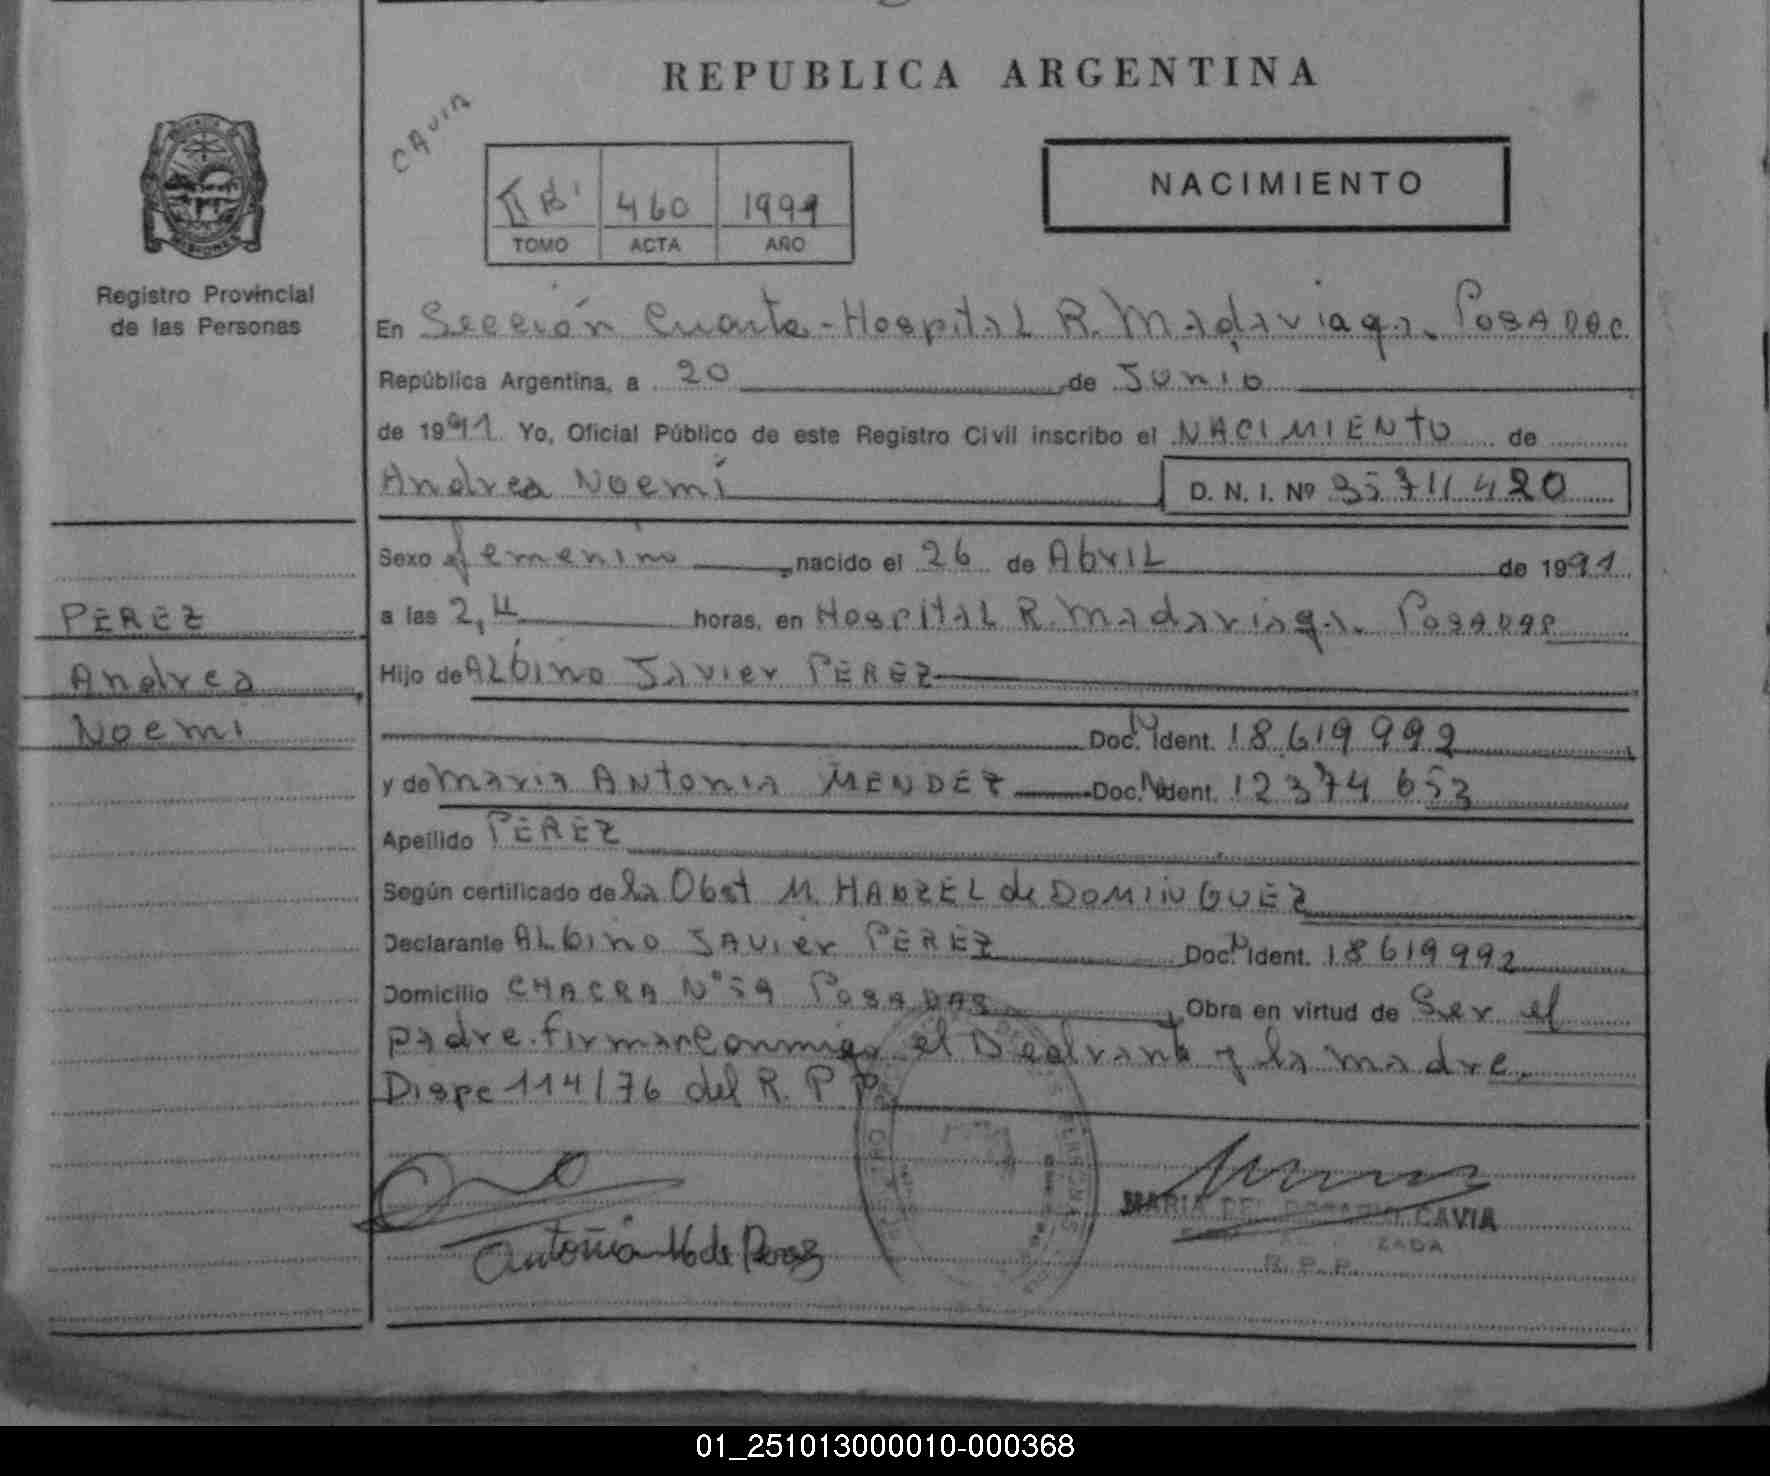 REPUBLICA ARGENTINA
CAVIA
NACIMIENTO
II B' 460 1991
TOMO ACTA AÑO
Registro Provincial
de las Personas
En Sección Cuarta - Hospital R. Madariaga. Posadas
República Argentina, a 20 de Junio
de 1991 Yo, Oficial Público de este Registro Civil inscribo el NACIMIENTO de
Andrea Noemí D. N. I. Nº 35711420
Sexo femenino, nacido el 26 de Abril de 1991
PEREZ
Andrea
Noemi
a las 2,4 horas, en Hospital R. Madariaga. Posadas
Hijo de Albino Javier PEREZ
Doc. N Ident. 18.619992
y de Maria Antonia MENDEZ Doc. N Ident. 12374653
Apellido PEREZ
Según certificado de la Obst M. HANZEL de DOMINGUEZ
Declarante Albino Javier PEREZ Doc. N Ident. 18619992
Domicilio CHACRA N° 59 Posadas, Obra en virtud de Ser el
padre. firman conmigo el Dealrante y la madre.
Dispc 114/76 del R. P P.
Antonia M de Perez
MARIA DEL ROSARIO CAVIA
ZADA
R. P. P.
01_251013000010-000368